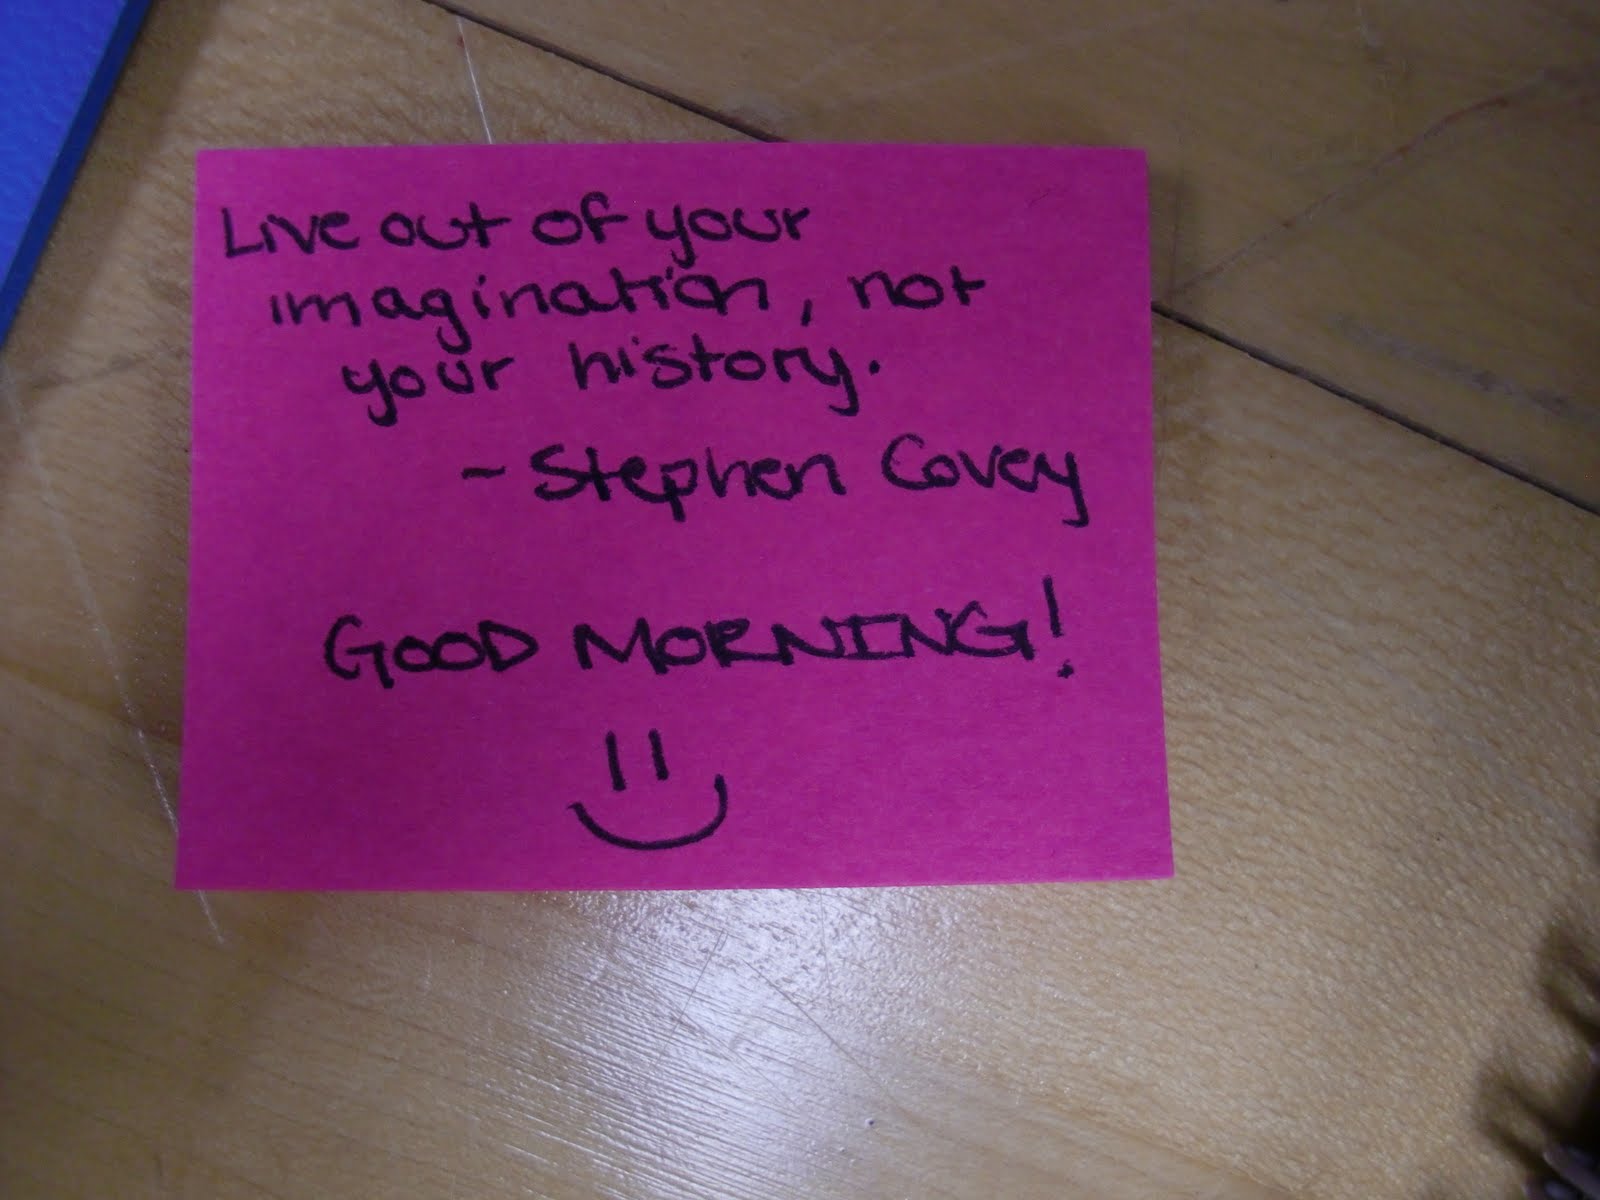 Live out of your
imagination, not
your history.
~ Stephen Covey
GOOD MORNING!